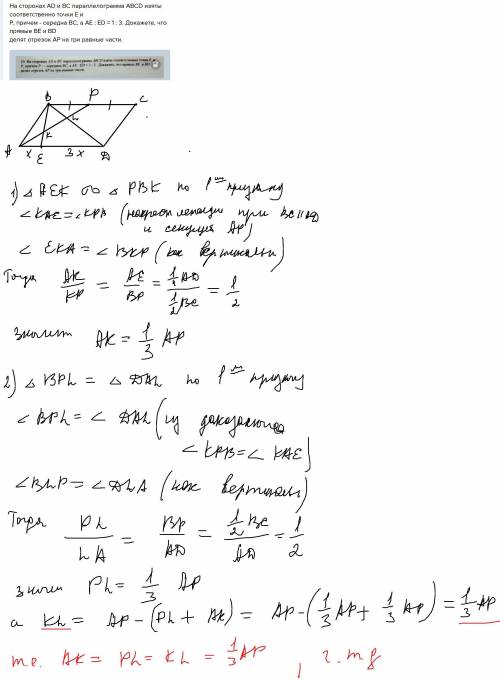 На сторонах AD и BC параллелограмма ABCD взяты
соответственно точки E и
P, причем - середна BC, а AE : ED = 1 : 3. Докажете, что
прямые BE и BD
делят отрезок AP на гри равные части.
B P C
L
K
A x E 3x D
1) △ AEK ∞ △ PBK по 1 ому признаку
∠ KAE = ∠ KPB (накрест лежащие при BC||AD
и секущей AP)
∠ EKA = ∠ BKP (как вертикальные)
Тогда AK/KP = AE/BP = 1/4 AD / 1/2 BC = 1/2
Значит AK = 1/3 AP
2) △ BPL = △ DAL по 1 му признаку
∠ BPL = ∠ DAL (из доказанного
∠ KPB = ∠ KAE)
∠ BLP = ∠ DLA (как вертикальн)
Тогда PL/LA = BP/AD = 1/2 BC / AD = 1/2
значит PL = 1/3 AP
а KL = AP - (PL + AK) = AP - (1/3 AP + 1/3 AP) = 1/3 AP
т.е. AK = PL = KL = 1/3 AP, ч.т.д